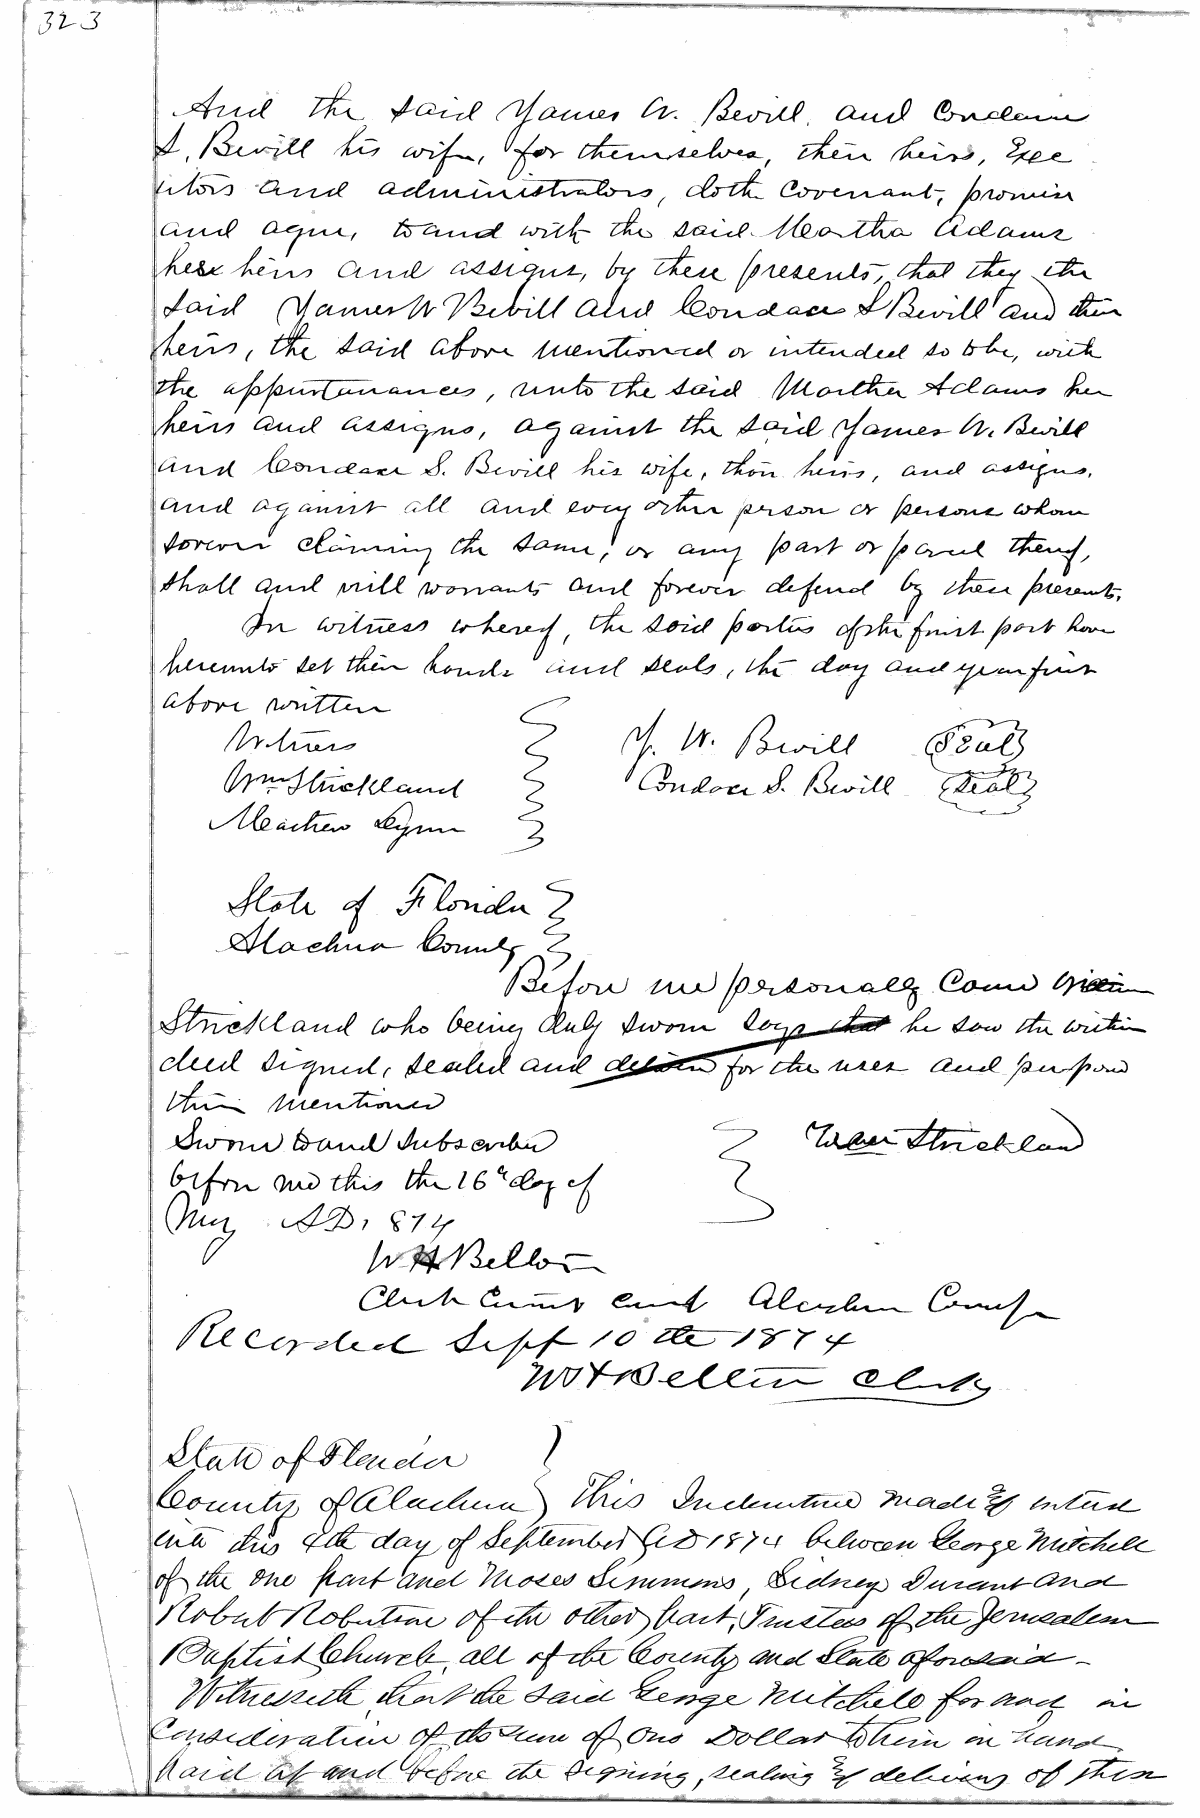 323
And the said James W. Bevill, and Condace
S. Bevill his wife, for themselves, their heirs, Exe
utors and administrators, doth covenant, promise
and agree, to and with the said Martha Adams
her heirs and assigns, by these presents, that they the
said James W Bevill and Condace S Bevill and their
heirs, the said above mentioned or intended so to be, with
the appurtenances, unto the said Martha Adams her
heirs and assigns, against the said James W. Bevill
and Condace S. Bevill his wife, their heirs, and assigns,
and against all and every other person or persons whom
soever claiming the same, or any part or parcel thereof,
shall and will warrants and forever defend by these presents.
In witness whereof, the said parties of the first part have
hereunto set their hands and seals, the day and year first
above written
Witness
J. W. Bevill (Seal)
Wm Strickland
Condace S. Bevill (Seal)
Mathew Lynn
State of Florida
Alachua County
Before me personally came
Strickland who being duly sworn says that he saw the within
deed signed, sealed and for the uses and purposes
therein mentioned
Sworn to and subscribed
Strickland
before me this the 16th day of
May AD, 874
W H Belton
Clerk Circuit Court Alachua County
Recorded Sept 10 th 1874
W H Belton Clerk
State of Florida
County of Alachua } This Indenture made & entered
into this 4th day of September AD 1874 between George Mitchell
of the one part and Moses Simmons, Sidney Durant and
Robert Robertson of the other part, Trustees of the Jerusalem
Baptist Church, all of the County and State aforesaid -
Witnesseth, that the said George Mitchell for and in
Consideration of the sum of One Dollar to him in hand
paid at and before the signing, sealing & delivery of these